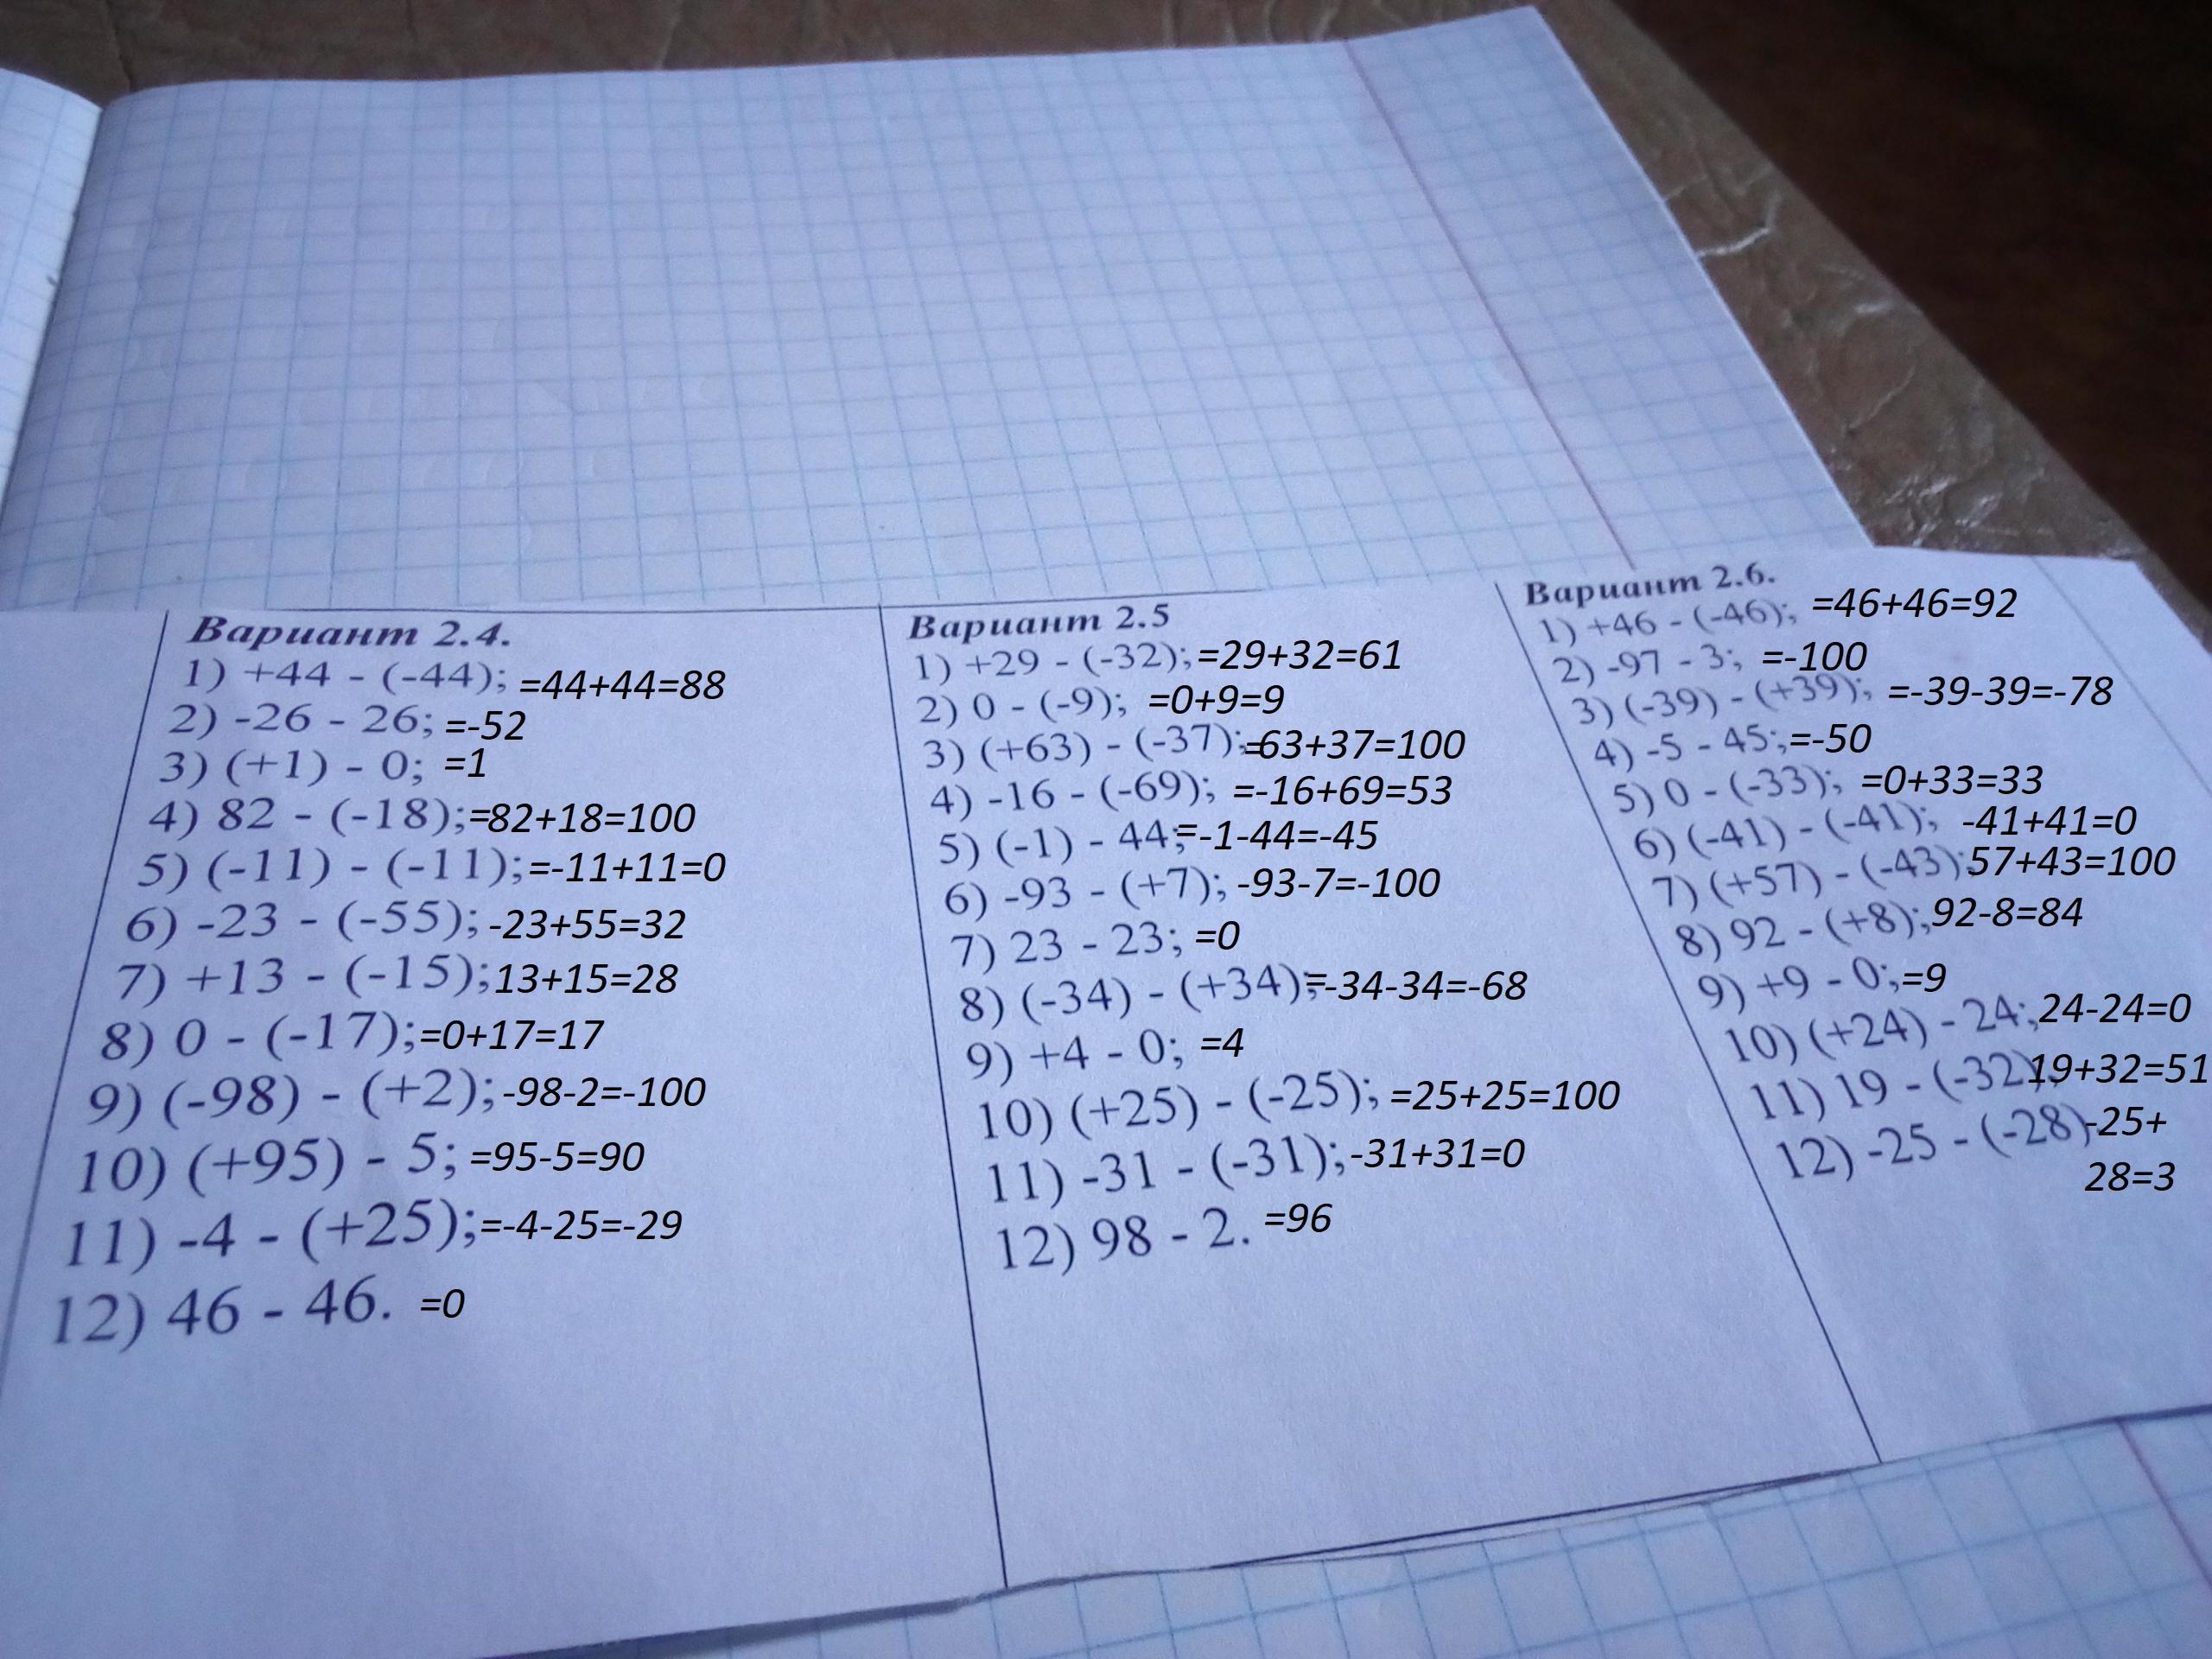 Вариант 2.4.
1) +44 - (-44); =44+44=88
2) -26 - 26; =-52
3) (+1) - 0; =1
4) 82 - (-18);=82+18=100
5) (-11) - (-11);=-11+11=0
6) -23 - (-55); -23+55=32
7) +13 - (-15);13+15=28
8) 0 - (-17);=0+17=17
9) (-98) - (+2);-98-2=-100
10) (+95) - 5; =95-5=90
11) -4 - (+25);=-4-25=-29
12) 46 - 46. =0
Вариант 2.5
1) +29 - (-32);=29+32=61
2) 0 - (-9); =0+9=9
3) (+63) - (-37);=63+37=100
4) -16 - (-69); =-16+69=53
5) (-1) - 44;=-1-44=-45
6) -93 - (+7); -93-7=-100
7) 23 - 23; =0
8) (-34) - (+34);=-34-34=-68
9) +4 - 0; =4
10) (+25) - (-25); =25+25=100
11) -31 - (-31);-31+31=0
12) 98 - 2. =96
Вариант 2.6.
1) +46 - (-46); =46+46=92
2) -97 - 3; =-100
3) (-39) - (+39); =-39-39=-78
4) -5 - 45;=-50
5) 0 - (-33); =0+33=33
6) (-41) - (-41); -41+41=0
7) (+57) - (-43);57+43=100
8) 92 - (+8);92-8=84
9) +9 - 0;=9
10) (+24) - 24;24-24=0
11) 19 - (-32);19+32=51
12) -25 - (-28) -25+
28=3